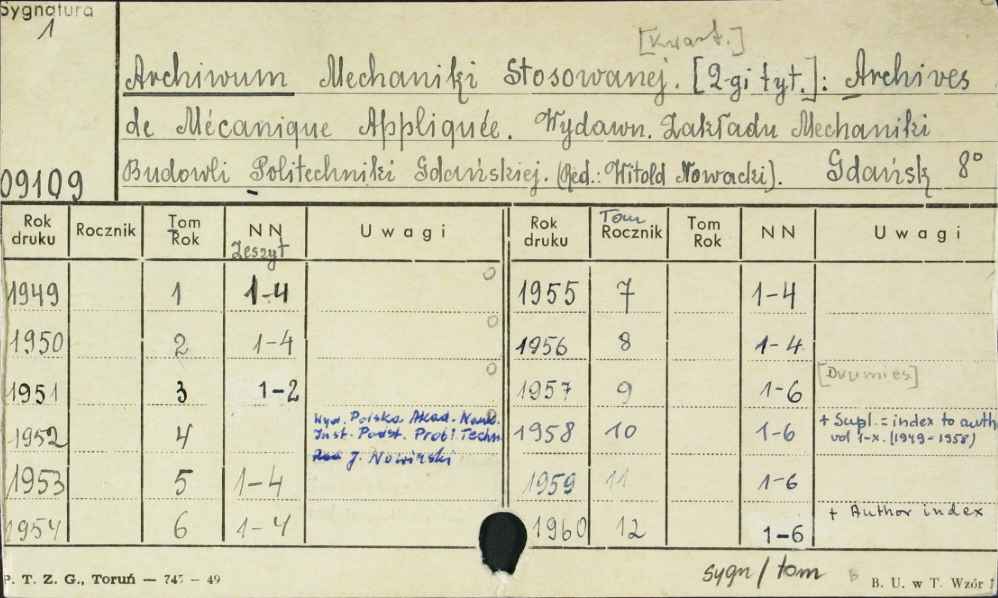 Sygnatura
1
[Kwart.]
Archiwum Mechaniki Stosowanej. [2-gi tyt.]: Archives
de Mécanique Appliquée. Wydawn. Zakładu Mechaniki
09109 Budowli Politechniki Gdańskiej. (Red.: Witold Nowacki). Gdańsk 8°
Rok druku Rocznik Tom Rok NN Zeszyt Uwagi Rok druku Tom Rocznik Tom Rok NN Uwagi
1949 1 1-4 1955 7 1-4
1950 2 1-4 1956 8 1-4
1951 3 1-2 1957 9 1-6 [Dwumies]
1952 4 Wyd. Polska Akad. Nauk. 1958 10 1-6 + Supl. = index to auth
Inst. Podst. Probl. Techn vol 1-X. (1949-1958)
Red J. Nowiński
1953 5 1-4 1959 11 1-6
1954 6 1-4 1960 12 1-6 + Author index
sygn/tom
P. T. Z. G., Toruń — 747 - 49 B. U. w T. Wzór 1